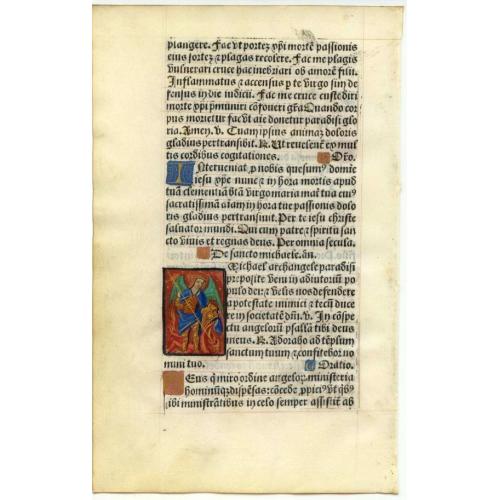 plangere. Fac vt portez xp̄i mortē passionis
eius sortez ⁊ plagas recolere. Fac me plagis
vulnerari cruce hac inebriari ob amorē filii.
Inflammatus ⁊ accensus p te virgo sim de
fensus in die iudicii. Fac me cruce custodiri
morte xp̄i p̄muniri cōfoueri gr̄a Quando cor
pus morietur fac vt aīe donetur paradisi glo
ria. Amen. v. Tuam ipsius animaz doloris
gladius pertransibit. R. Ut reuelent̄ ex mul
tis cordibus cogitationes. Oro.
Interueniat p nobis quesum⁹ domīe
iesu xp̄e nunc ⁊ in hora mortis apud
tuā clementiā btā virgo maria mat̄ tua cui⁹
sacratissimā aīam in hora tue passionis dolo
ris gladius pertransiuit. Per te iesu christe
saluator mundi. Qui cum patre ⁊ spiritu san
cto viuis et regnas deus. Per omnia secula.
De sancto michaele. an.
Michael archangele paradisi
preposite veni in adiutoriū po
pulo dei: ⁊ velis nos defendere
a potestate inimici ⁊ tecū duce
re in societatē dn̄i. v. In cōspe
ctu angelorū psallā tibi deus
meus. R. Adorabo ad tēplum
sanctum tuum ⁊ confitebor no
mini tuo. Oratio.
Deus q̄ miro ordine angeloꝝ ministeria
hominūqꝫ dispēsas: cōcede ꝓpici⁹ vt a qb⁹
tibi ministrātibus in celo semper assistit̄ ab